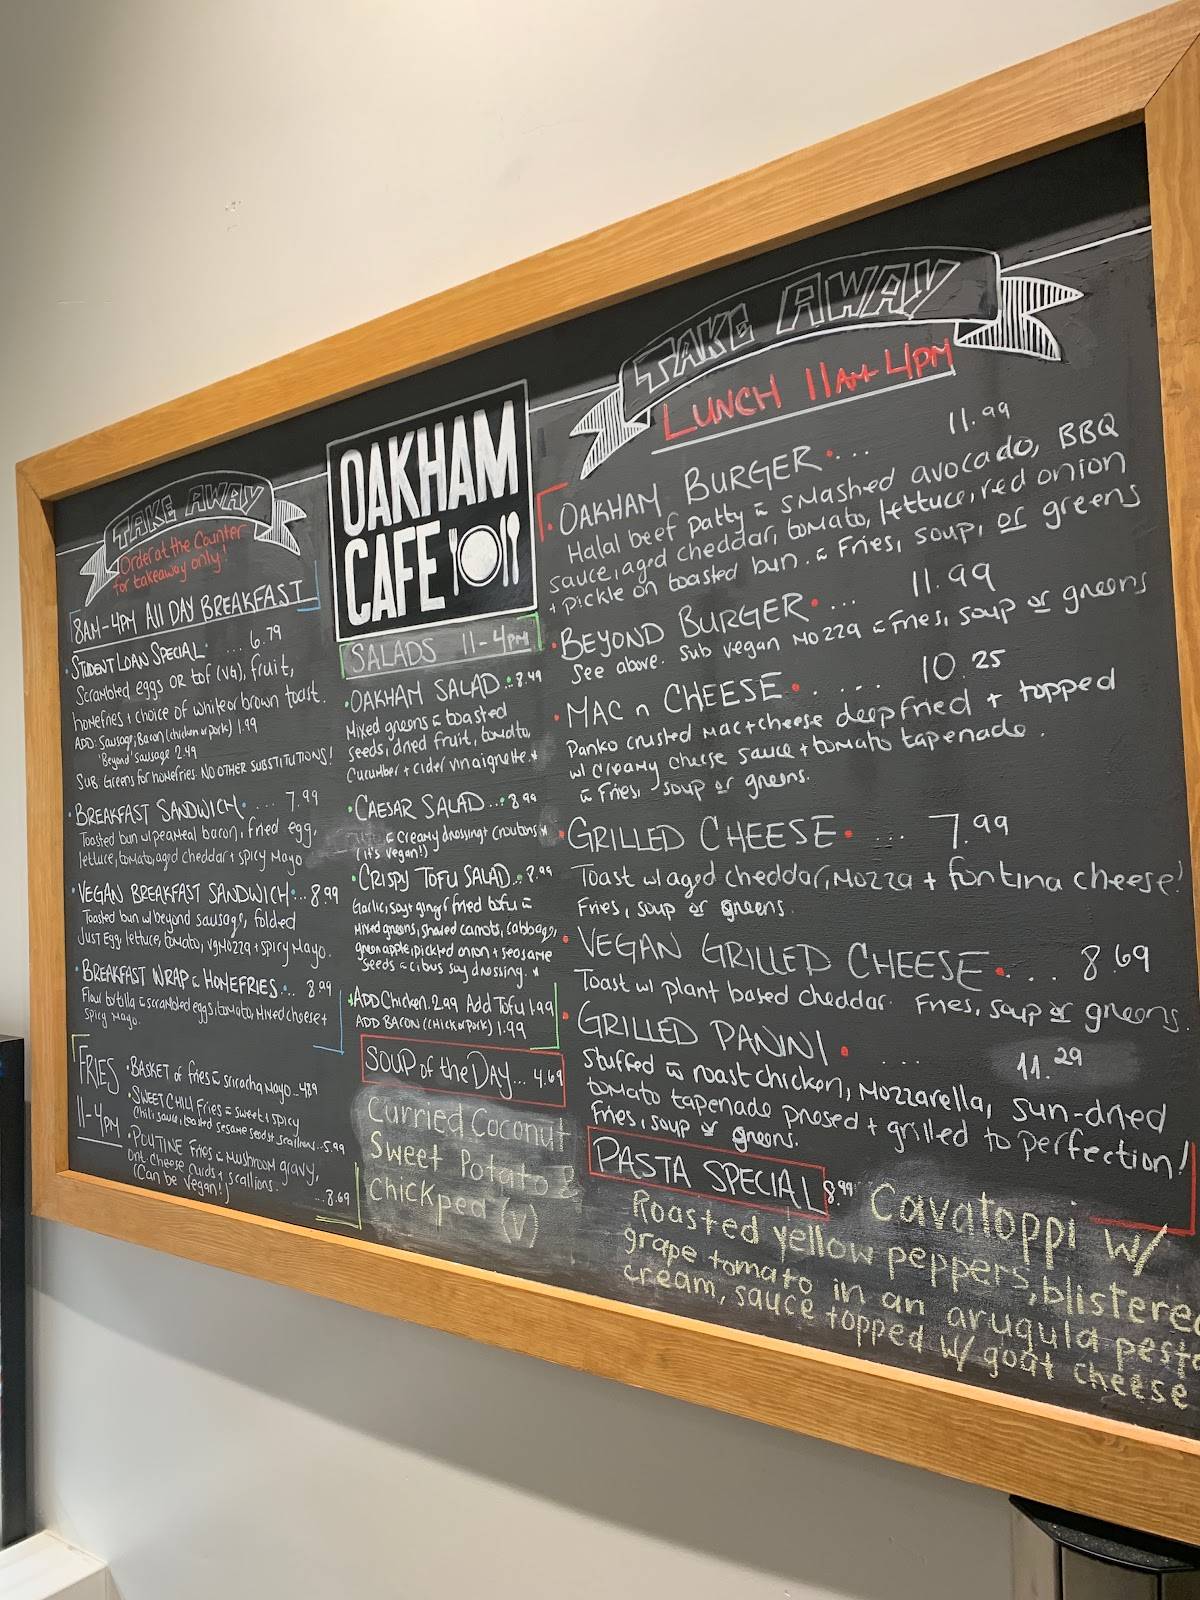 TAKE AWAY
Order at the Counter
for takeaway only!
8AM-4PM All DAY BREAKFAST
• STUDENT LOAN SPECIAL . ... 6.79
Scrambled eggs OR tof (VG), fruit,
homefries + choice of white or brown toast.
ADD: Sausage, Bacon (chicken or pork) 1.99
'Beyond' Sausage 2.49
SUB: Greens for homefries. NO OTHER SUBSTITUTIONS!
• BREAKFAST SANDWICH . ... 7.99
Toasted bun w/ peameal bacon, fried egg,
lettuce, tomato, aged cheddar + spicy Mayo
• VEGAN BREAKFAST SANDWICH ... 8.99
Toasted bun w/ beyond sausage, folded
JUST Egg, lettuce, tomato, vg Mozza + spicy Mayo.
• BREAKFAST WRAP c HOMEFRIES ... 8.99
Flour tortilla c scrambled eggs, tomato, Mixed cheese +
Spicy Mayo.
FRIES
11-4PM
• BASKET of fries c sriracha Mayo ... 4.29
• SWEET CHILI Fries c sweet + spicy
Chili sauce, toasted sesame seeds + scallions ... 5.99
• POUTINE Fries c mushroom gravy,
Ont. cheese curds + scallions.
(Can be vegan!) ... 8.69
OAKHAM
CAFE
SALADS 11-4PM
• OAKHAM SALAD ... 8.49
Mixed greens c toasted
seeds, dried fruit, tomato,
cucumber + cider vinaigrette.*
• CAESAR SALAD ... 8.99
c creamy dressing + croutons *
(it's vegan!)
• CRISPY TOFU SALAD ...
Garlic, soy + ginger fried tofu c
Mixed greens, shaved carrots, cabbage,
green apple, pickled onion + sesame
seeds c cibus soy dressing. *
* ADD Chicken. 2.99 Add Tofu 1.99
ADD BACON (Chick or pork) 1.99
SOUP of the DAY... 4.69
Curried Coconut
Sweet Potato &
Chickped (V)
TAKE AWAY
LUNCH 11AM-4PM
• OAKHAM BURGER . ... 11.99
Halal beef patty c smashed avocado, BBQ
sauce, aged cheddar, tomato, lettuce, red onion
+ pickle on toasted bun. c Fries, soup, or greens
• BEYOND BURGER . ... 11.99
See above. Sub vegan Mozza c Fries, soup or greens
• MAC n CHEESE . .... 10.25
Panko crusted Mac + cheese deep fried + topped
w/ creamy cheese sauce + tomato tapenade.
c Fries, soup or greens.
• GRILLED CHEESE . ... 7.99
Toast w/ aged cheddar, Mozza + fontina cheese!
Fries, soup or greens.
• VEGAN GRILLED CHEESE . ... 8.69
Toast w/ plant based cheddar. Fries, soup or greens.
• GRILLED PANINI . .... 11.29
Stuffed c roast chicken, Mozzarella, sun-dried
tomato tapenade pressed + grilled to perfection!
Fries, soup or greens.
PASTA SPECIAL 8.99 Cavatoppi w/
Roasted yellow peppers, blistered
grape tomato in an arugula pesto
cream, sauce topped w/ goat cheese